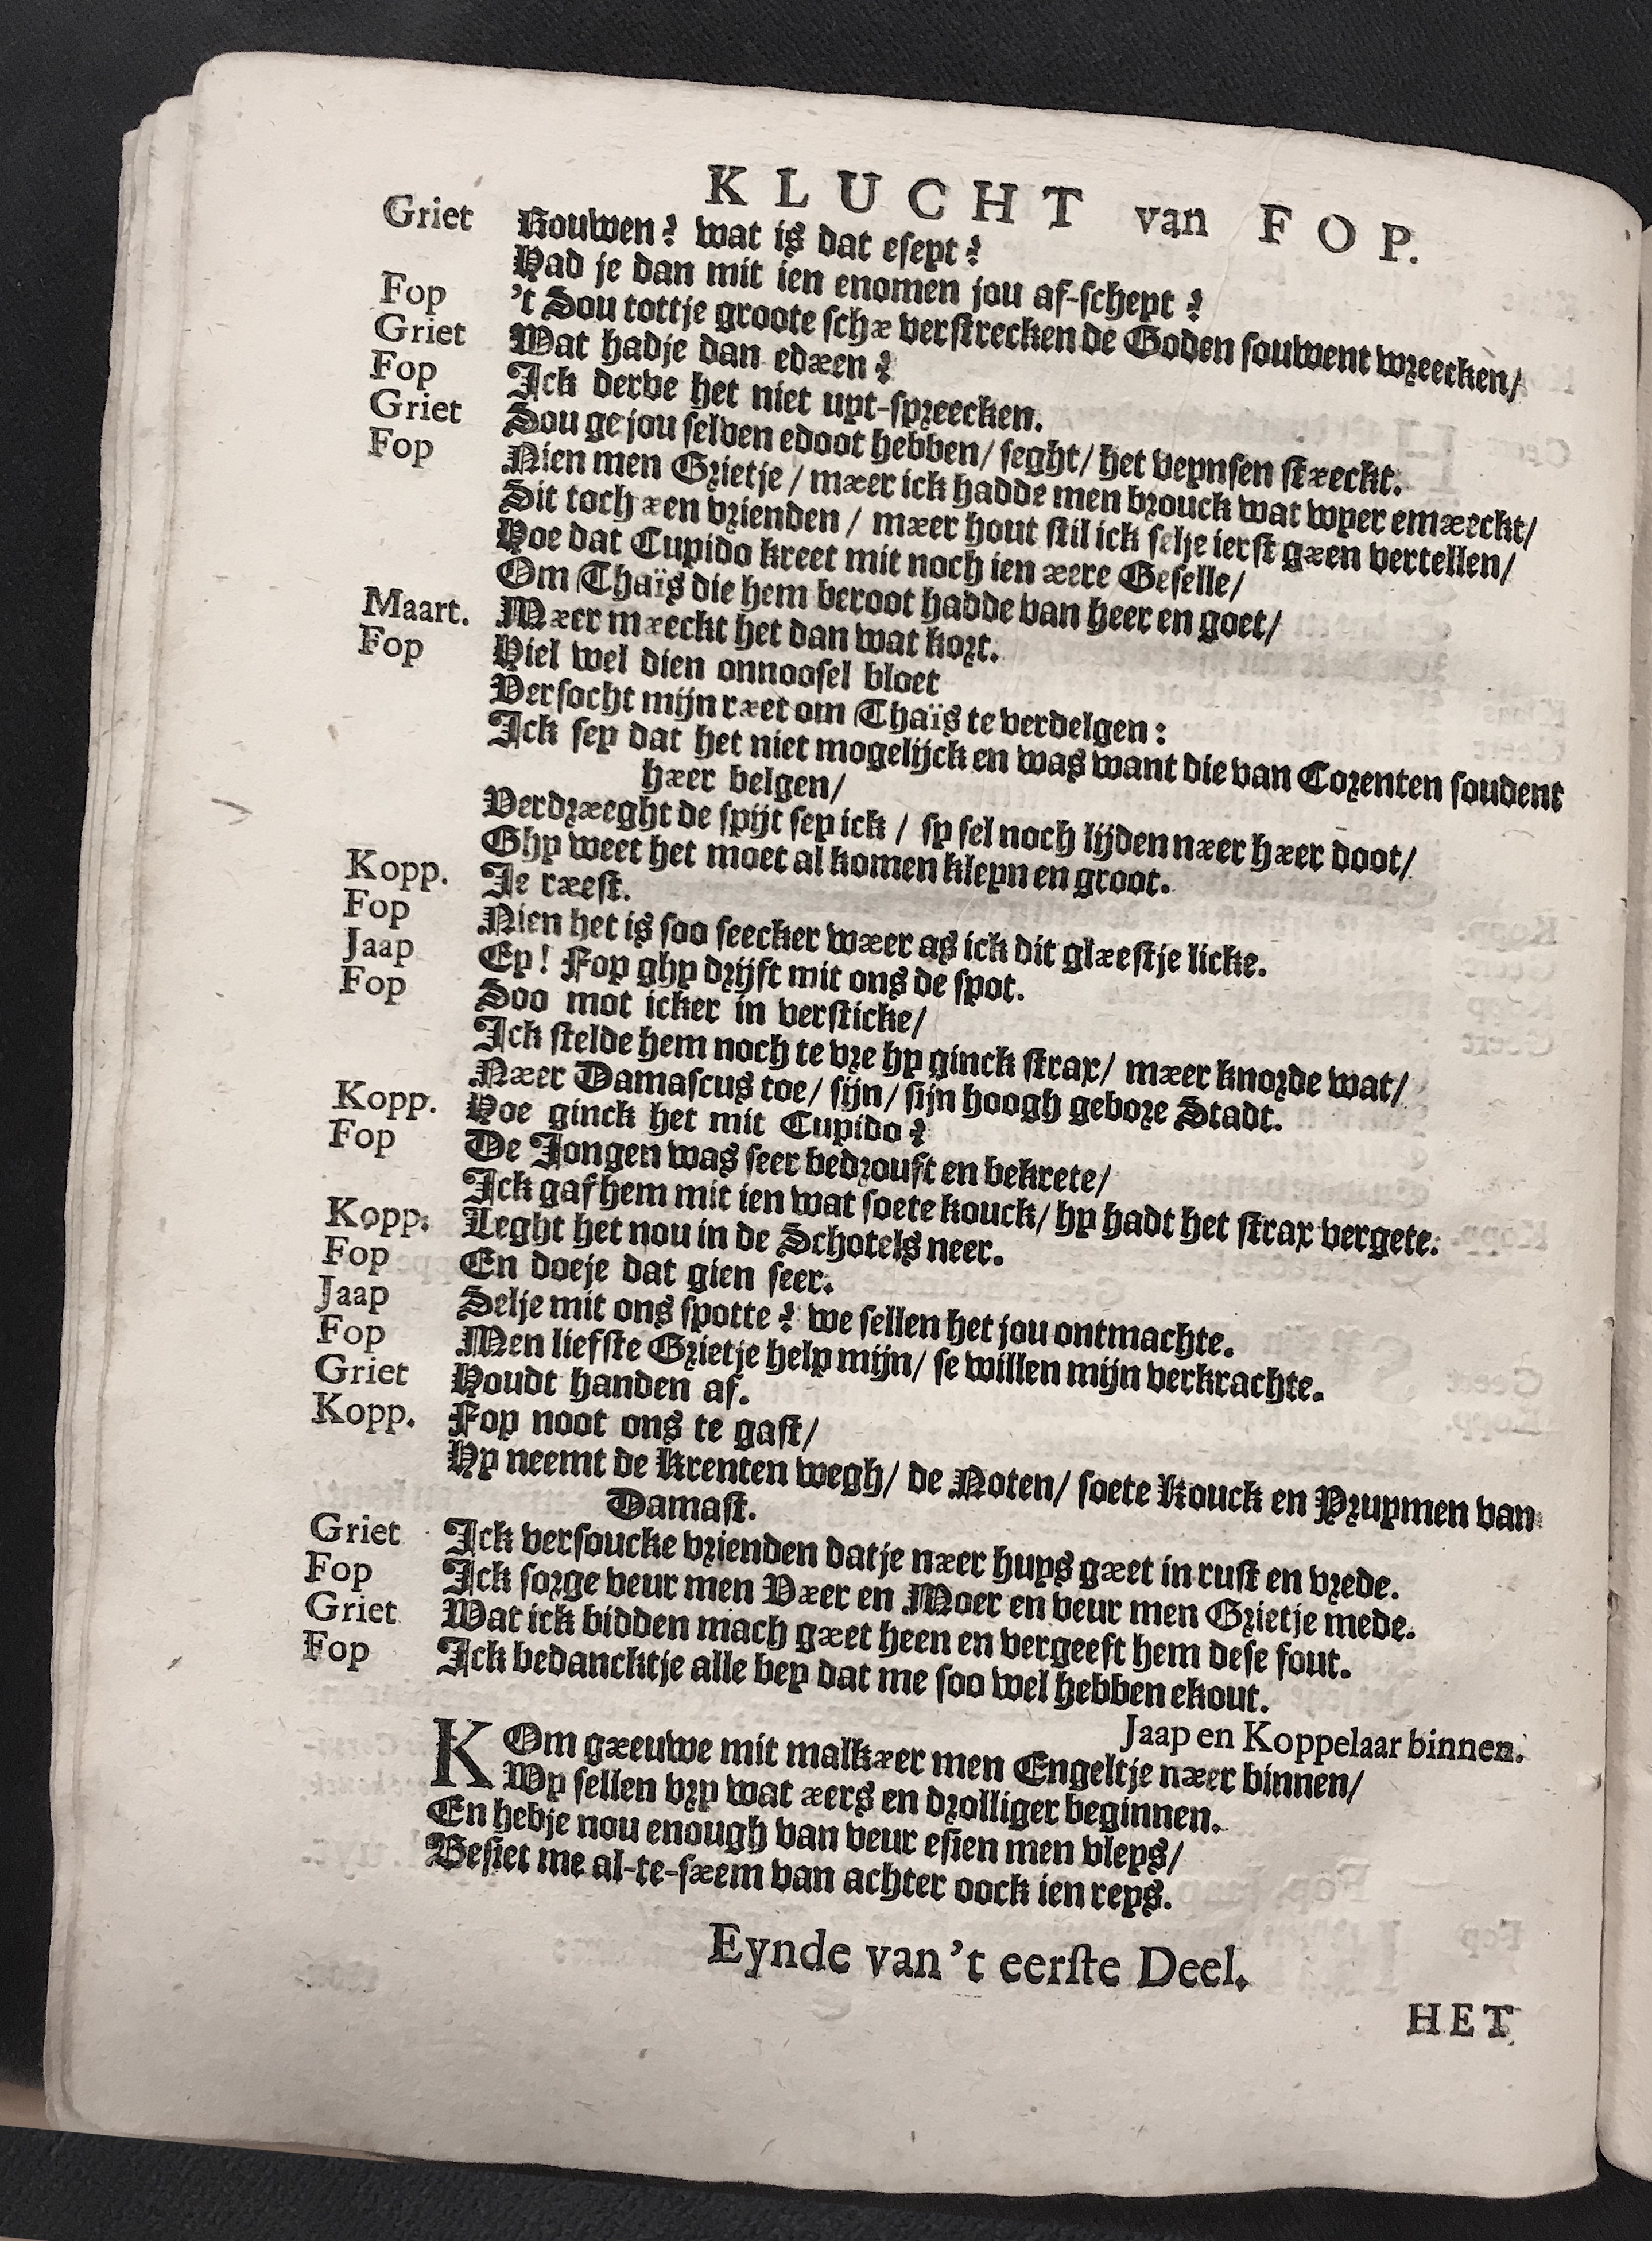 KLUCHT van FOP.
Griet Kouwen? wat is dat eseyt?
Had je dan mit ien enomen jou af-scheyt?
Fop 't Sou tottje groote schæ verstrecken de Goden souwent wreecken/
Griet Wat hadje dan edæen?
Fop Ick derve het niet uyt-spreecken.
Griet Sou ge jou selven edoot hebben/ seght/ het veynsen stæeckt.
Fop Nien men Grietje / mæer ick hadde men brouck wat wyer emæeckt/
Sit toch æen vrienden / mæer hout stil ick selje ierst gæen vertellen/
Hoe dat Cupido kreet mit noch ien æere Geselle/
Om Thaïs die hem beroot hadde van heer en goet/
Maart. Mæer mæeckt het dan wat kort.
Fop Hiel wel dien onnoosel bloet
Versocht mijn ræet om Thaïs te verdelgen:
Ick sey dat het niet mogelijck en was want die van Corenten soudent
hæer belgen/
Verdræeght de spijt sey ick / sy sel noch lijden næer hæer doot/
Ghy weet het moet al komen kleyn en groot.
Kopp. Je ræest.
Fop Nien het is soo seecker wæer as ick dit glæestje licke.
Jaap Ey! Fop ghy drijft mit ons de spot.
Fop Soo mot icker in versticke/
Ick stelde hem noch te vre hy ginck strax/ mæer knorde wat/
Næer Damascus toe/ sijn/ sijn hoogh gebore Stadt.
Kopp. Hoe ginck het mit Cupido?
Fop De Jongen was seer bedrouft en bekrete/
Ick gaf hem mit ien wat soete kouck/ hy hadt het strax vergete.
Kopp. Leght het nou in de Schotels neer.
Fop En doeje dat gien seer.
Jaap Selje mit ons spotte? we sellen het jou ontmachte.
Fop Men liefste Grietje help mijn/ se willen mijn verkrachte.
Griet Houdt handen af.
Kopp. Fop noot ons te gast/
Hy neemt de Krenten wegh/ de Noten/ soete Kouck en Pruymen van
Damast.
Griet Ick versoucke vrienden datje næer huys gæet in rust en vrede.
Fop Ick sorge veur men Væer en Moer en veur men Grietje mede.
Griet Wat ick bidden mach gæet heen en vergeeft hem dese fout.
Fop Ick bedancktje alle bey dat me soo wel hebben ekout.
Jaap en Koppelaar binnen.
KOm gæeuwe mit malkæer men Engeltje næer binnen/
Wy sellen vry wat æers en drolliger beginnen.
En hebje nou enough van veur esien men vleys/
Besiet me al-te-sæem van achter oock ien reys.
Eynde van't eerste Deel.
HET